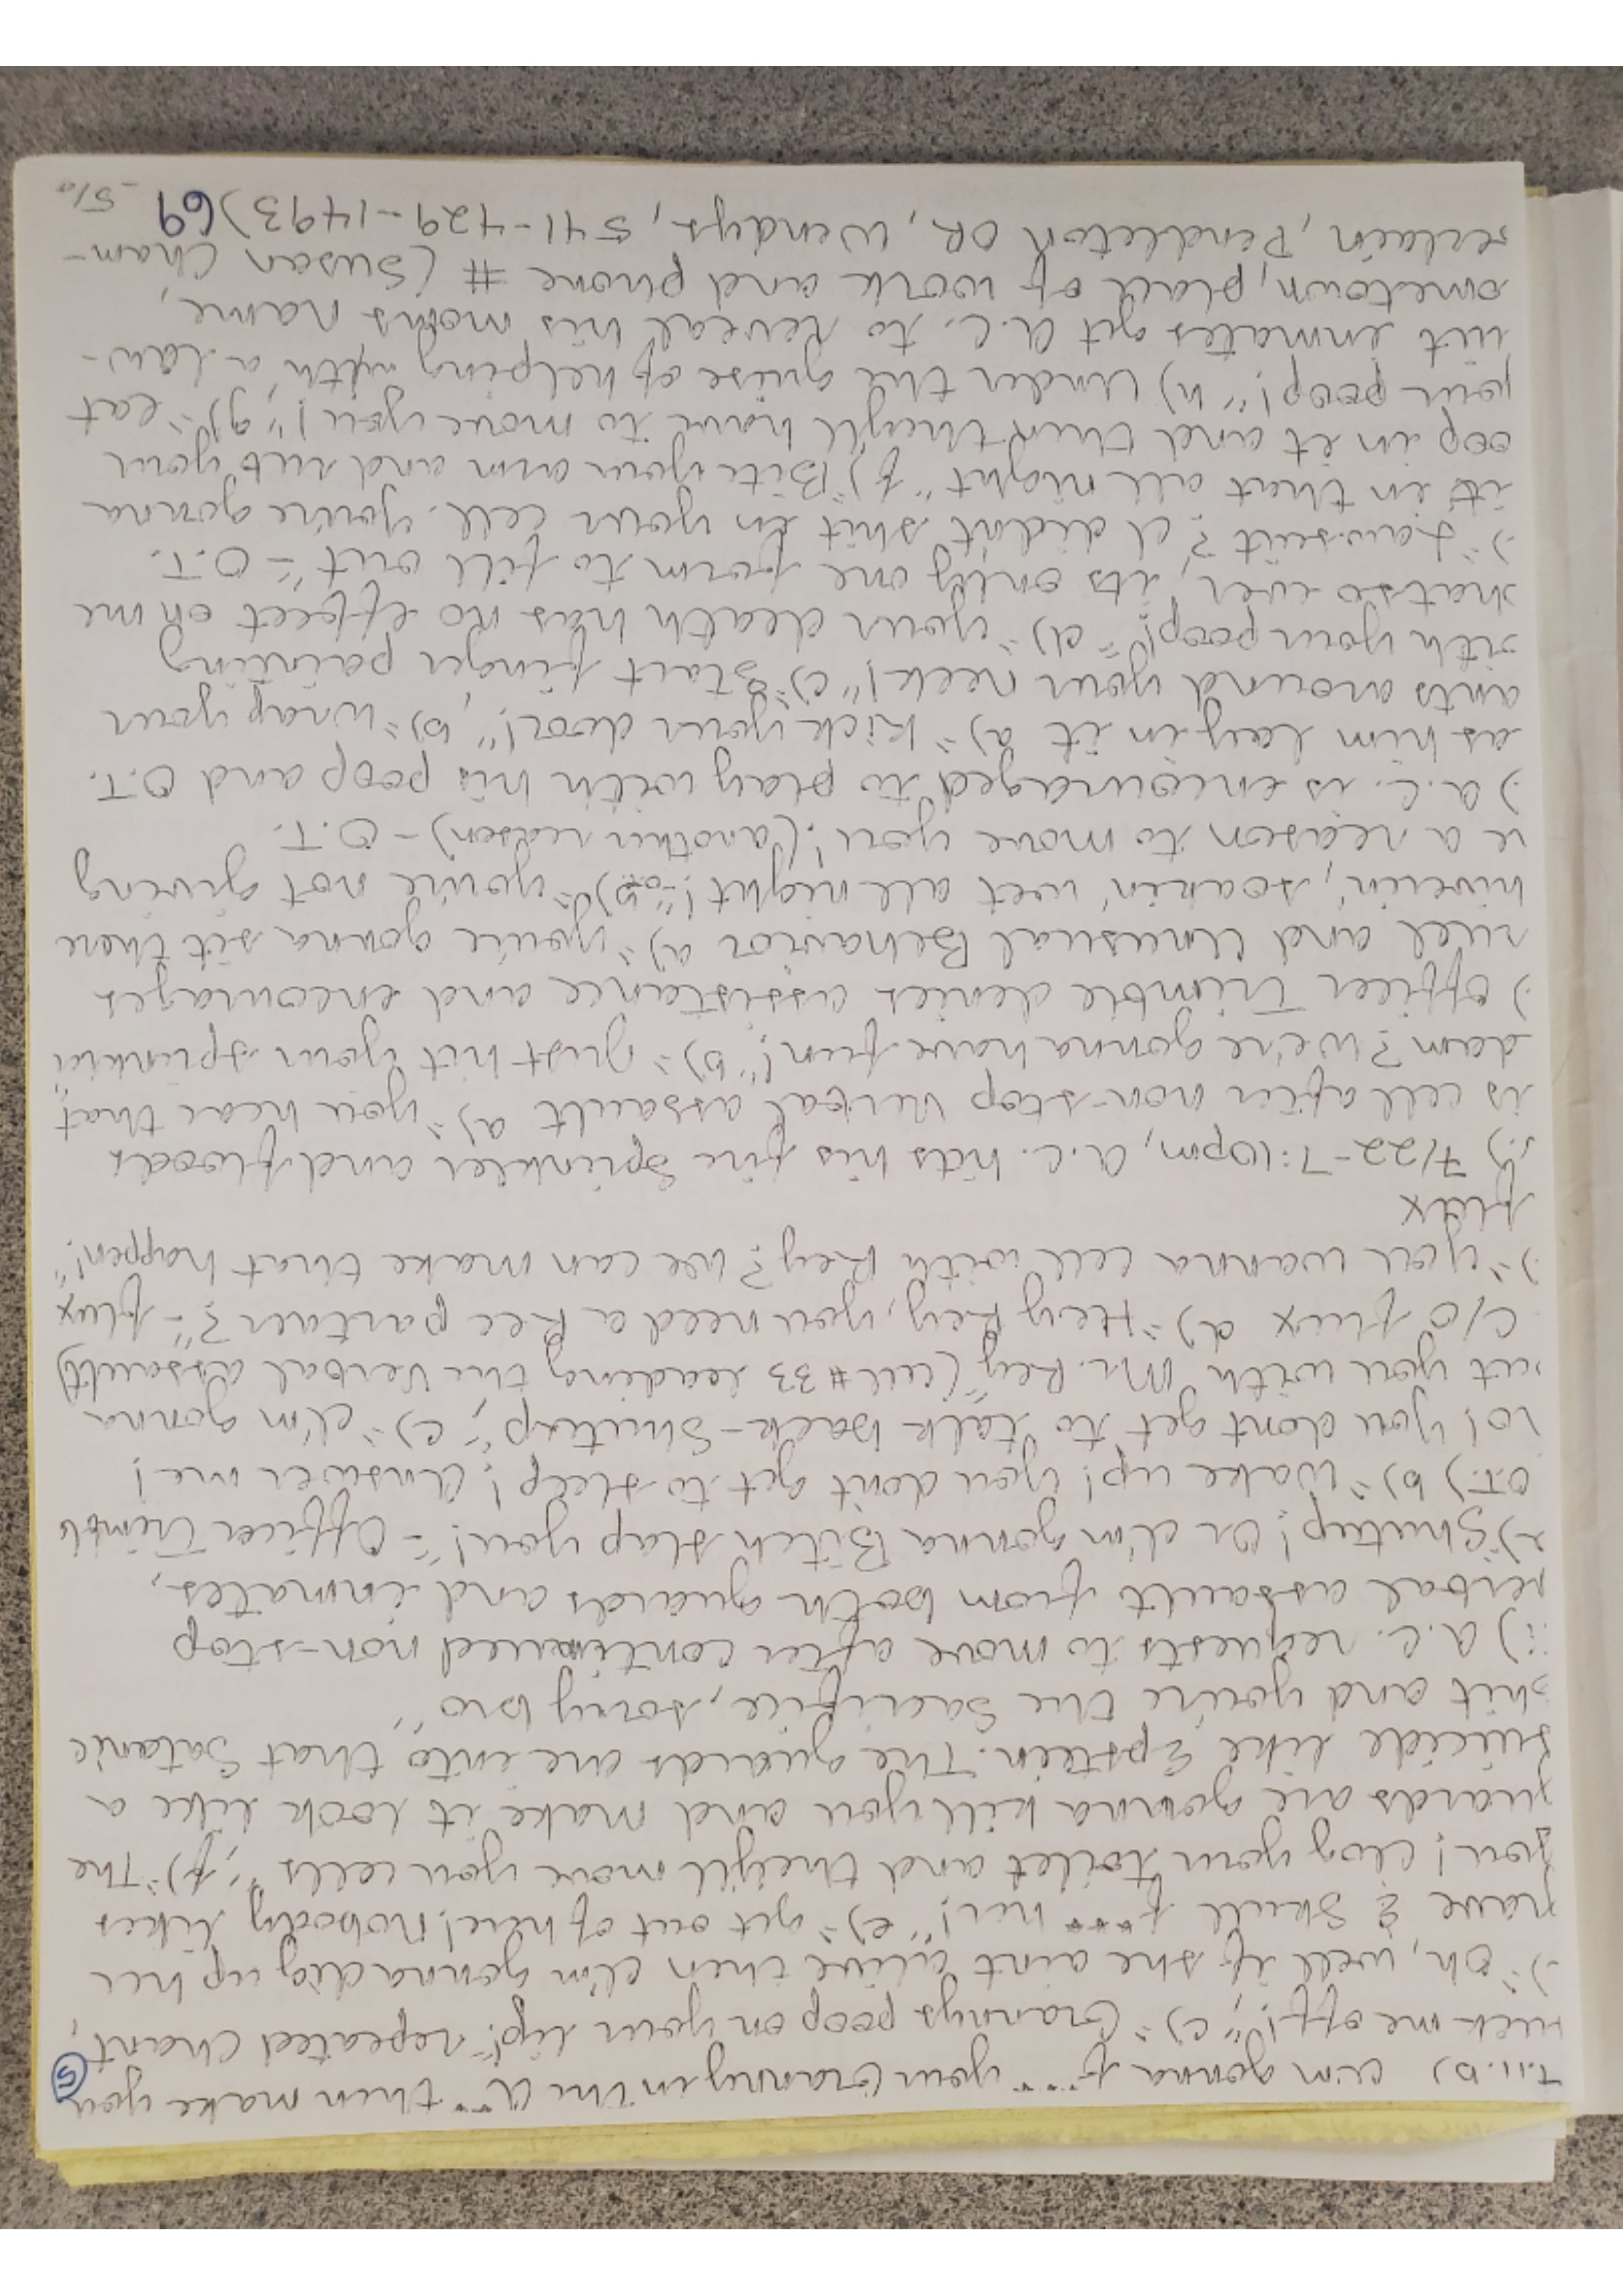 7.11.b) I'm gonna f*** your Granny in the A** then make you
suck me off!", c)="Grannys poop on your lip!" repeated chant,
)="Oh, well if she aint alive then I'm gonna dig up her
grave & skull f*** her!", e)="get out of here! nobody likes
you! clog your toilet and they'll move your cells", f)="The
guards are gonna kill you and make it look like a
suicide like Epstein. The guards are into that Satanic
shit and you're the sacrifice, sorry bro"
ii) a.c. requests to move after continued non-stop
verbal assault from both guards and inmates,
a)="Shutup! or I'm gonna Bitch slap you!" - Officer Trimble
O.T.) b)="Wake up! you don't get to sleep! Answer me!
no! you dont get to talk back - Shutup", c)="I'm gonna
put you with Mr. Rey" (cell #33 leading the verbal assault)
C/O flux d)="Hey Rey, you need a Rec partner?" - flux
)="you wanna cell with Rey? we can make that happen!"
flux
) 7/22-7:10pm, a.c. hits his fire sprinkler and floods
his cell after non-stop verbal assault a)="you hear that
Adam? we're gonna have fun!", b)="just hit your sprinkler"
) Officer Trimble denies assistance and encourages
cruel and unusual Behavior a)="you're gonna sit there
shiverin', soakin' wet all night!" -O.T. b)="you're not giving
me a reason to move you! (another reason) - O.T.
) a.c. is encouraged to play with his poop and O.T.
has him lay in it a)="kick your door!", b)="wrap your
pants around your neck!" c)="Start finger painting
with your poop!" d)="your death has no effect on me
whatso ever, its only one form to fill out" - O.T.
)="Lawsuit? I didnt shit in your cell. you're gonna
sit in that all night" f)="Bite your arm and rub your
poop in it and then they'll have to move you!" g)="eat
your poop!" h) Under the guise of helping with a law-
suit inmates get a.c. to reveal his moms name,
hometown, place of work and phone # (Susan Cham-
berlain, Pendleton OR, Wendys, 541-429-1493) 69
-5/a
5